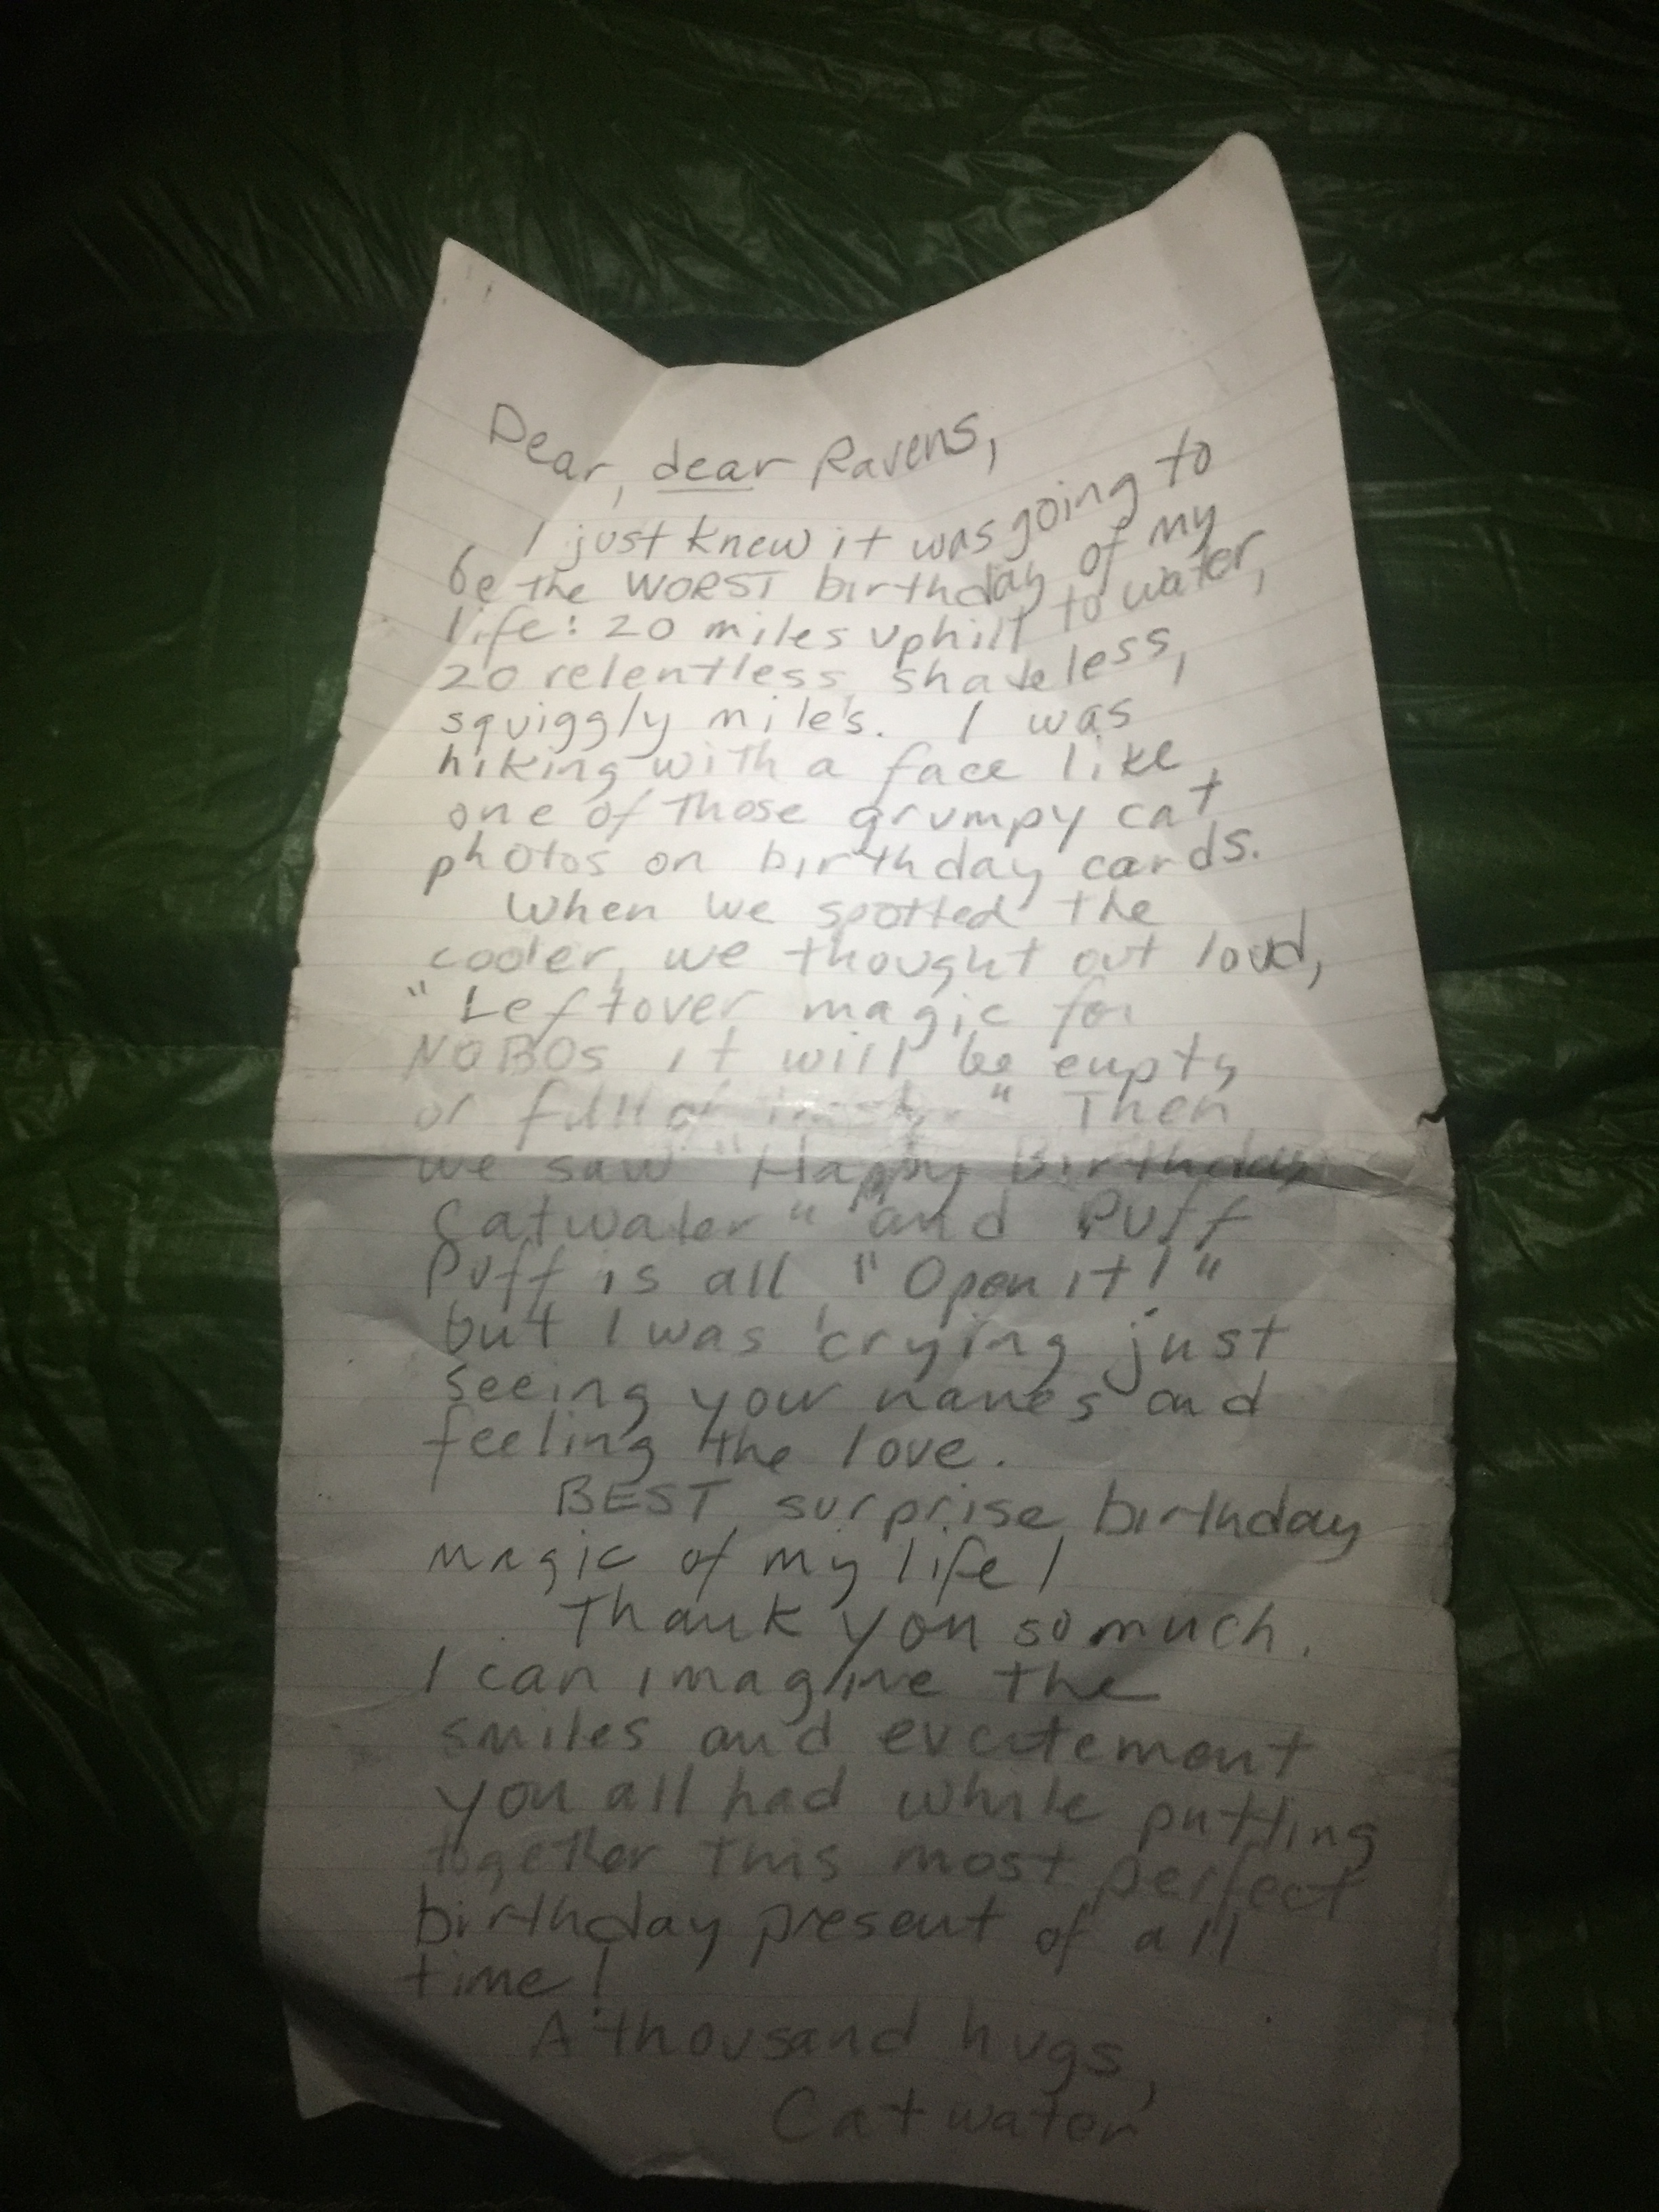 Dear, dear Ravens,
I just knew it was going to
be the WORST birthday of my
life: 20 miles uphill to water,
20 relentless, shadeless,
squiggly miles. I was
hiking with a face like
one of those grumpy cat
photos on birthday cards.
When we spotted the
cooler, we thought out loud,
"Leftover magic for
NOBOs it will be empty
or full of trash." Then
we saw "Happy Birthday
Catwater" and Puff
Puff is all "Open it!"
but I was crying just
seeing your names and
feeling the love.
BEST surprise birthday
magic of my life!
Thank you so much.
I can imagine the
smiles and excitement
you all had while putting
together this most perfect
birthday present of all
time!
A thousand hugs,
Catwater